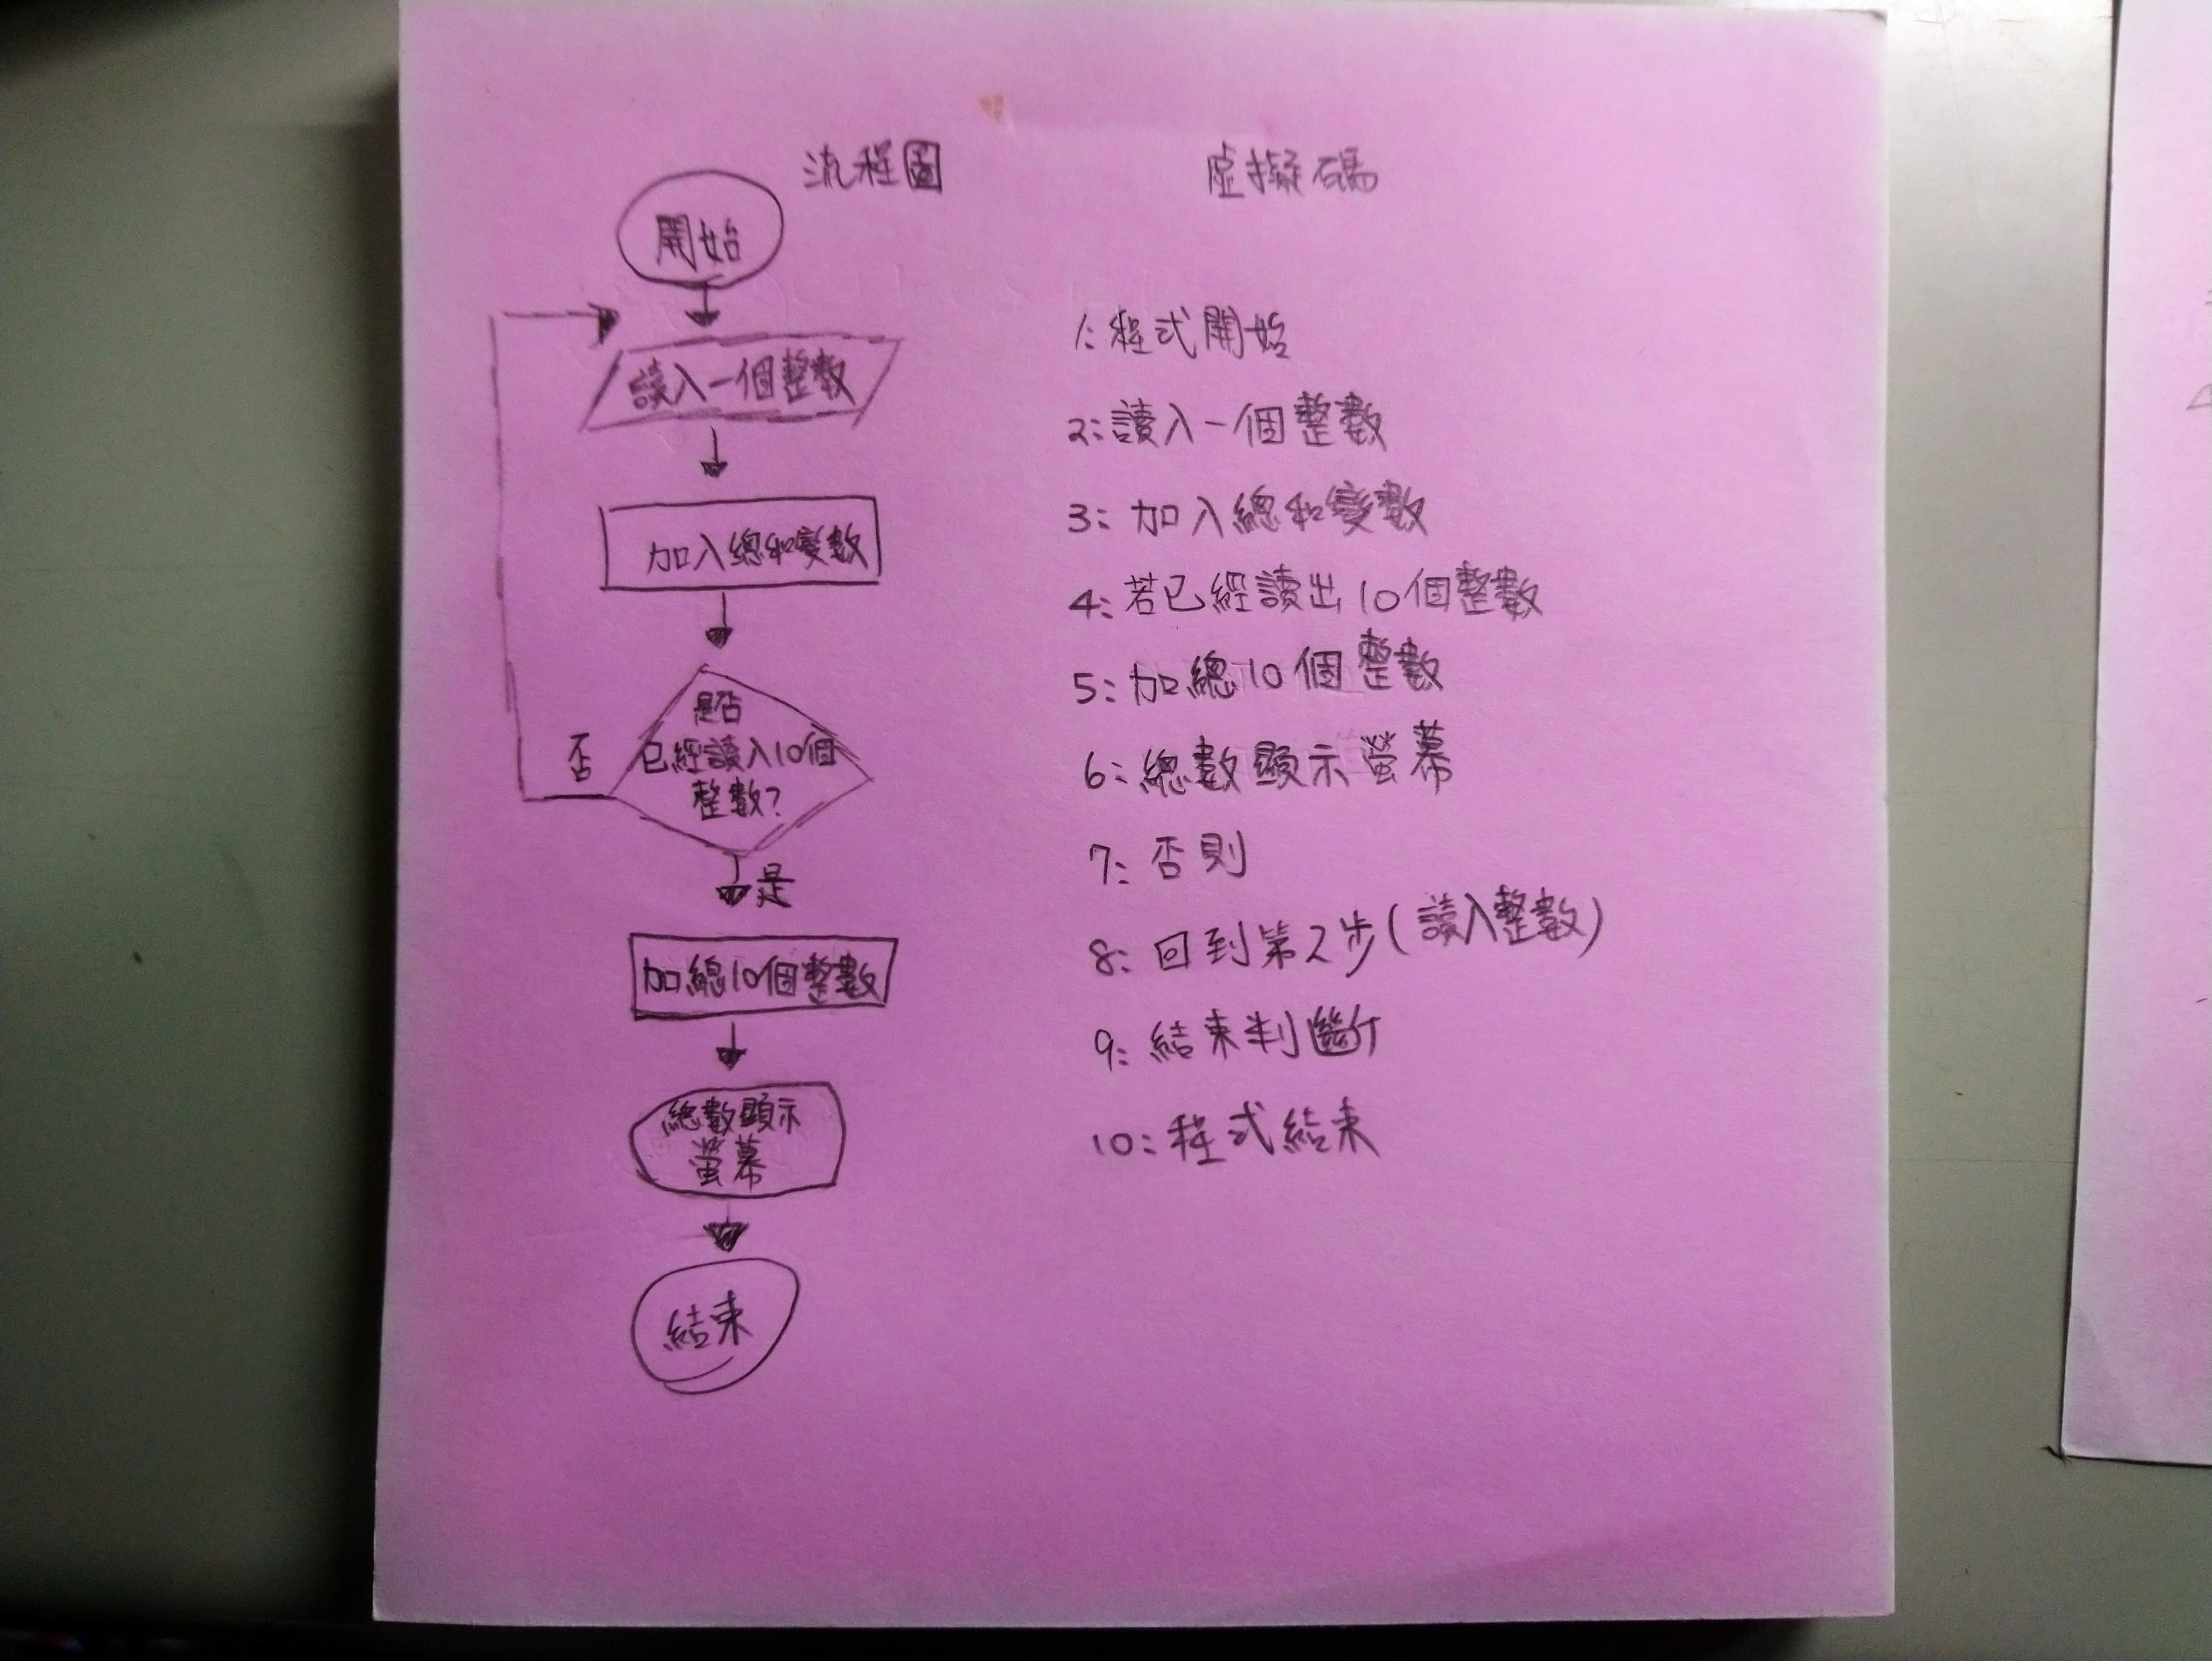 流程圖
開始
讀入一個整數
加入總和變數
是否
已經讀入10個
整數?
否
是
加總10個整數
總數顯示
螢幕
結束
虛擬碼
1:程式開始
2:讀入一個整數
3:加入總和變數
4:若已經讀出10個整數
5:加總10個整數
6:總數顯示螢幕
7:否則
8:回到第2步(讀入整數)
9:結束判斷
10:程式結束